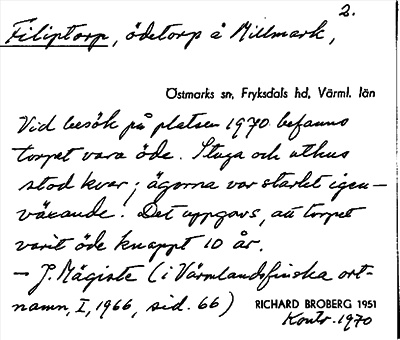 2.
Filiptorp, ödetorp å Millmark,
Östmarks sn, Fryksdals hd, Värml. län
Vid besök på platsen 1970 befanns
torpet vara öde. Stuga och uthus
stod kvar; ägorna var starkt igen-
växande. Det uppgavs, att torpet
varit öde knappt 10 år.
– J. Mägiste (i Värmlandsfinska ort-
namn, I, 1966, sid. 66)
RICHARD BROBERG 1951
Kontr. 1970